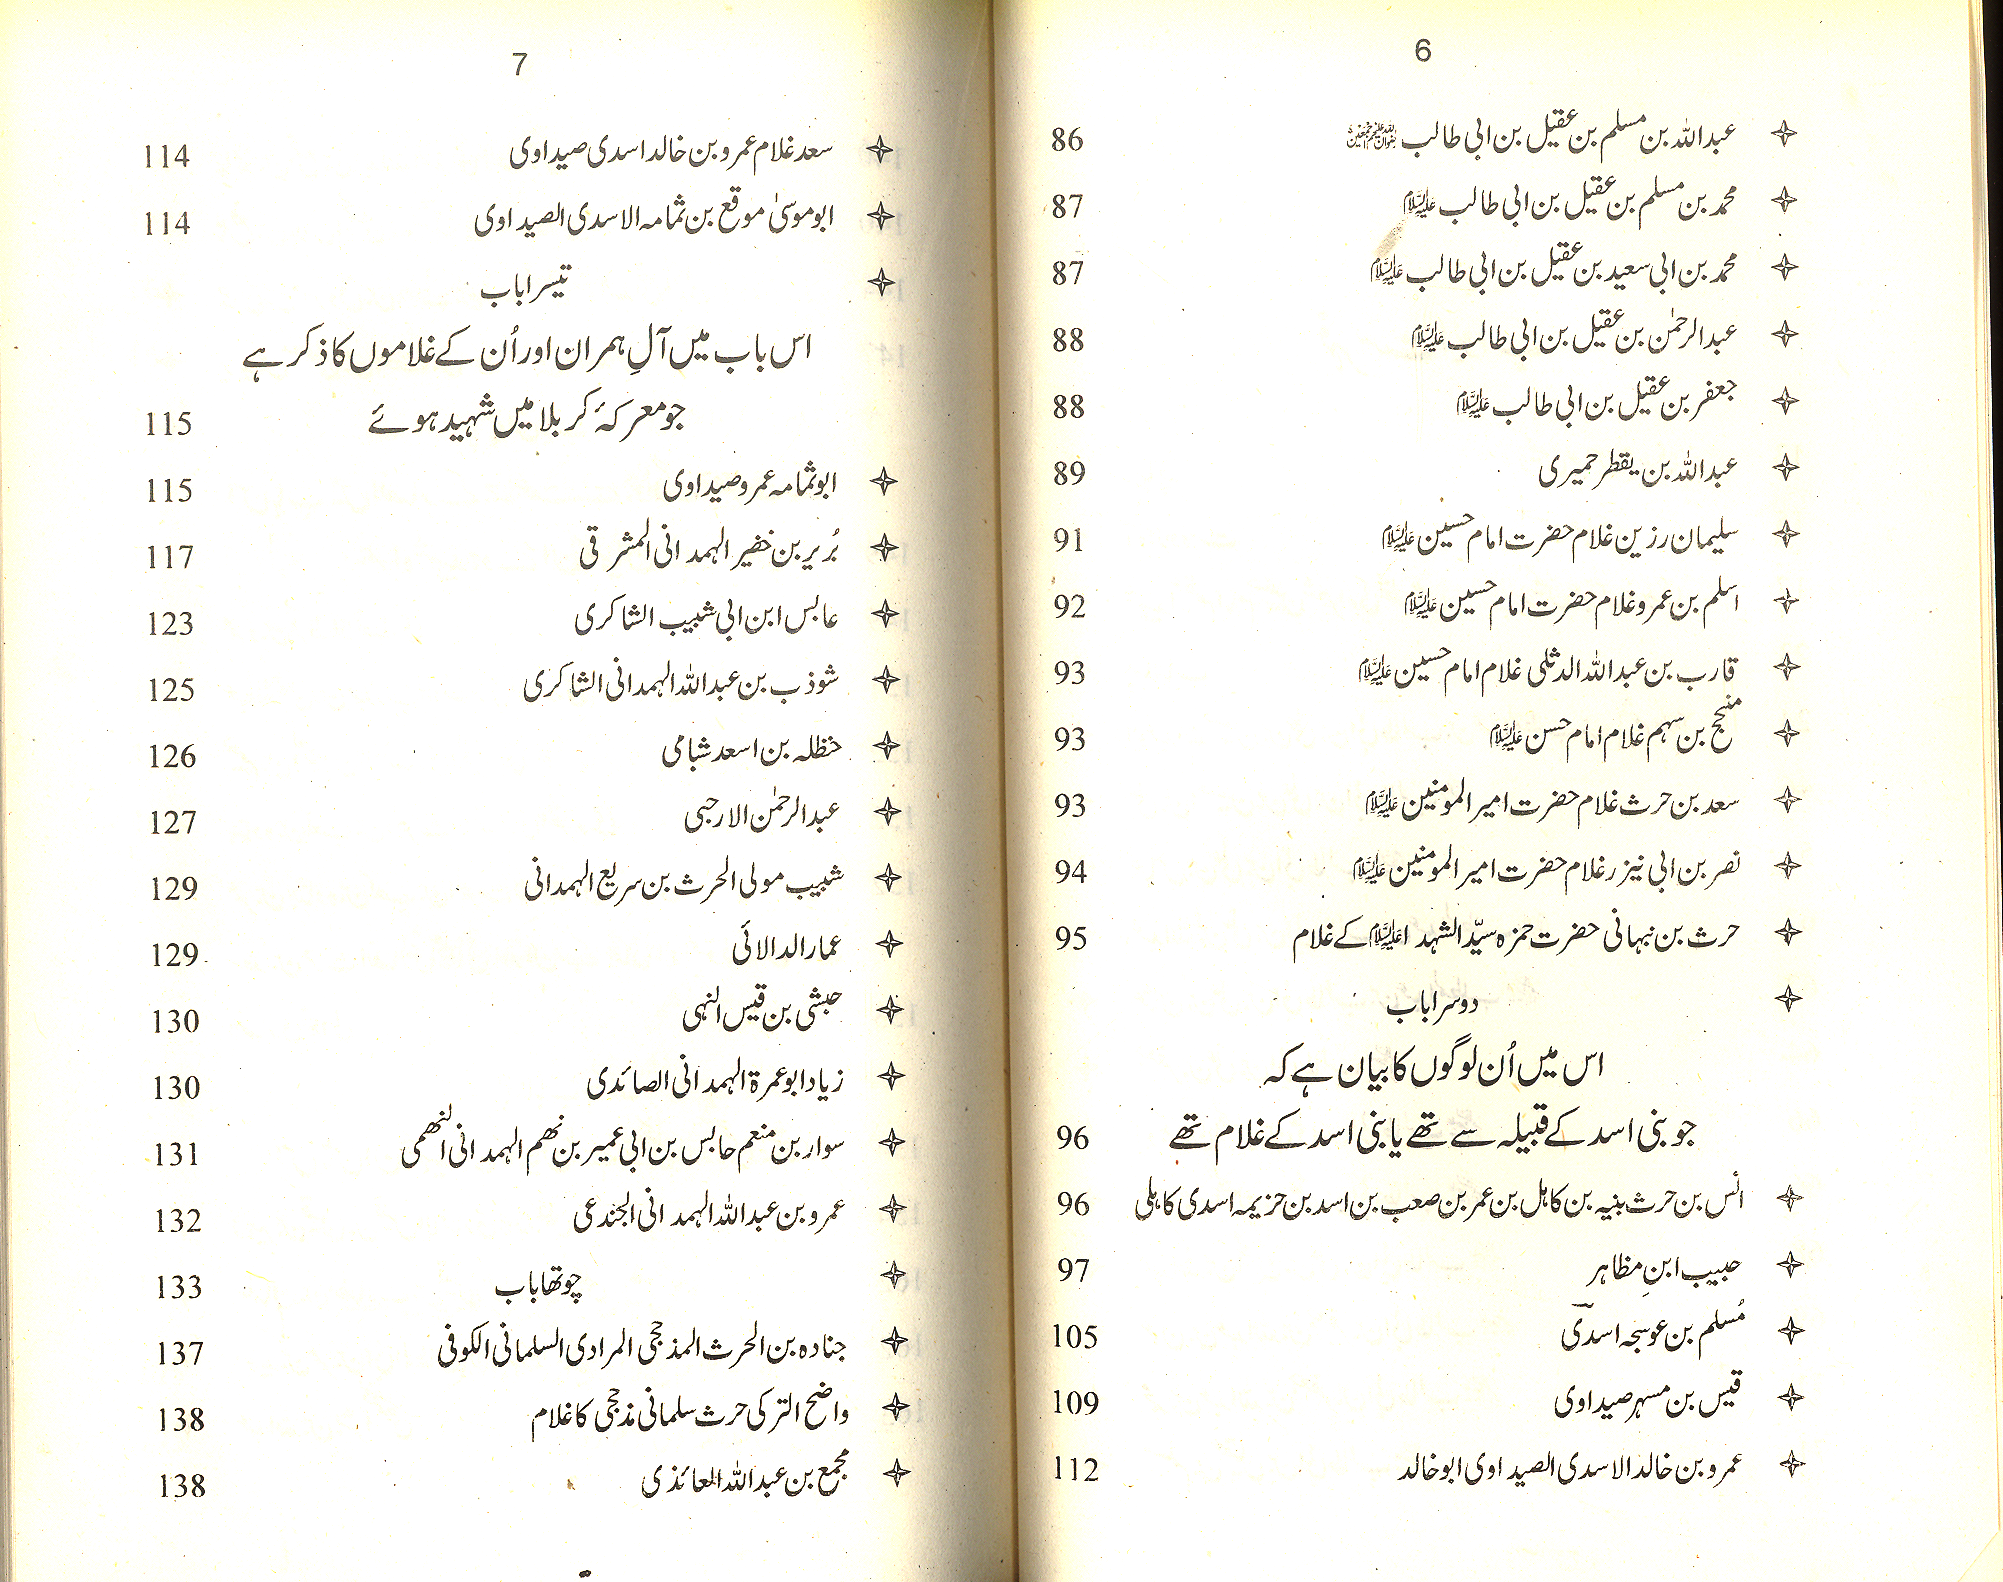 6
عبداللہ بن مسلم بن عقیل بن ابی طالب 86
محمد بن مسلم بن عقیل بن ابی طالب علیہ السلام 87
محمد بن ابی سعید بن عقیل بن ابی طالب علیہ السلام 87
عبدالرحمٰن بن عقیل بن ابی طالب علیہ السلام 88
جعفر بن عقیل بن ابی طالب علیہ السلام 88
عبداللہ بن یقطر حمیری 89
سلیمان رزین غلام حضرت امام حسین علیہ السلام 91
اسلم بن عمرو غلام حضرت امام حسین علیہ السلام 92
قارب بن عبداللہ الدئلی غلام امام حسین علیہ السلام 93
منجح بن سہم غلام امام حسن علیہ السلام 93
سعد بن حرث غلام حضرت امیر المومنین علیہ السلام 93
نصر بن ابی نیزر غلام حضرت امیر المومنین علیہ السلام 94
حرث بن نبہانی حضرت حمزہ سیّد الشہدا علیہ السلام کے غلام 95
دوسرا باب
اس میں اُن لوگوں کا بیان ہے کہ
جو بنی اسد کے قبیلہ سے تھے یا بنی اسد کے غلام تھے 96
انس بن حرث بنیہ بن کاہل بن عمر بن صعب بن اسد بن خزیمہ اسدی کاہلی 96
حبیب ابنِ مظاہر 97
مُسلم بن عوسجہ اسدی 105
قیس بن مسہر صیداوی 109
عمرو بن خالد الاسدی الصیداوی ابو خالد 112
7
سعد غلام عمرو بن خالد اسدی صیداوی 114
ابو موسیٰ موقع بن ثمامہ الاسدی الصیداوی 114
تیسرا باب
اس باب میں آلِ ہمران اور اُن کے غلاموں کا ذکر ہے
جو معرکۂ کربلا میں شہید ہوئے 115
ابو ثمامہ عمرو صیداوی 115
بُریر بن خضیر الہمدانی المشرقی 117
عابس ابن ابی شبیب الشاکری 123
شوذب بن عبداللہ الہمدانی الشاکری 125
حنظلہ بن اسعد شبامی 126
عبدالرحمٰن الارحبی 127
شبیب مولی الحرث بن سریع الہمدانی 129
عمار الدالائی 129
حبشی بن قیس النہی 130
زیاد ابو عمرۃ الہمدانی الصائدی 130
سوار بن منعم حابس بن ابی عمیر بن نھم الہمدانی النھمی 131
عمرو بن عبداللہ الہمدانی الجندعی 132
چوتھا باب 133
جنادہ بن الحرث المذحجی المرادی السلمانی الکوفی 137
واضح الترکی حرث سلمانی مذحجی کا غلام 138
مجمع بن عبداللہ العائذی 138